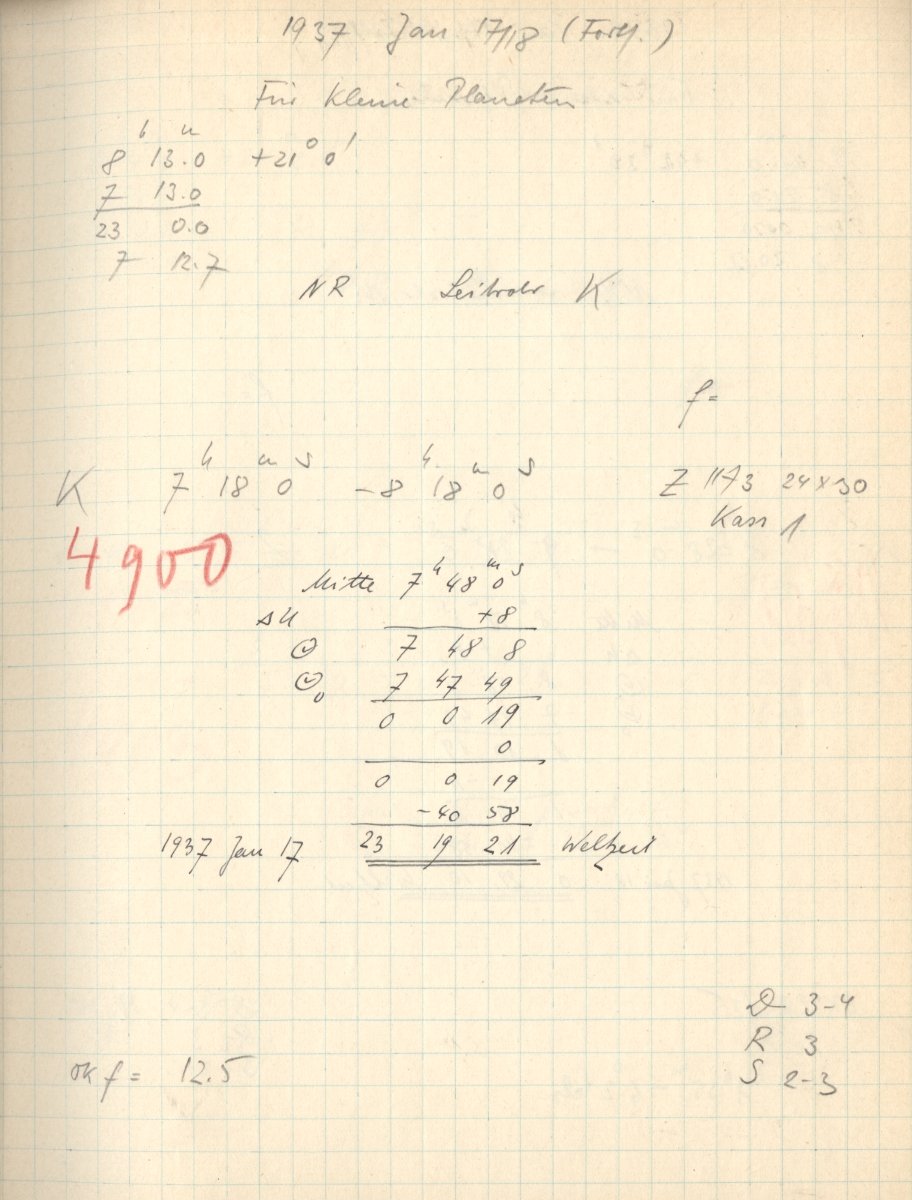 1937 Jan 17/18 (Forts.)
Für Kleine Planeten
h m
8 13.0 +21° 0'
7 13.0
23 0.0
7 12.7
NR Leitrohr K
f=
K 7h 18m 0s - 8h 18m 0s Z 1173 24x30
Kass 1
4900
Mitte 7h 48m 0s
ΔU +8
7 48 8
0 7 47 49
0 0 19
0
0 0 19
-40 58
1937 Jan 17 23 19 21 Weltzeit
D 3-4
R 3
ok f = 12.5
S 2-3